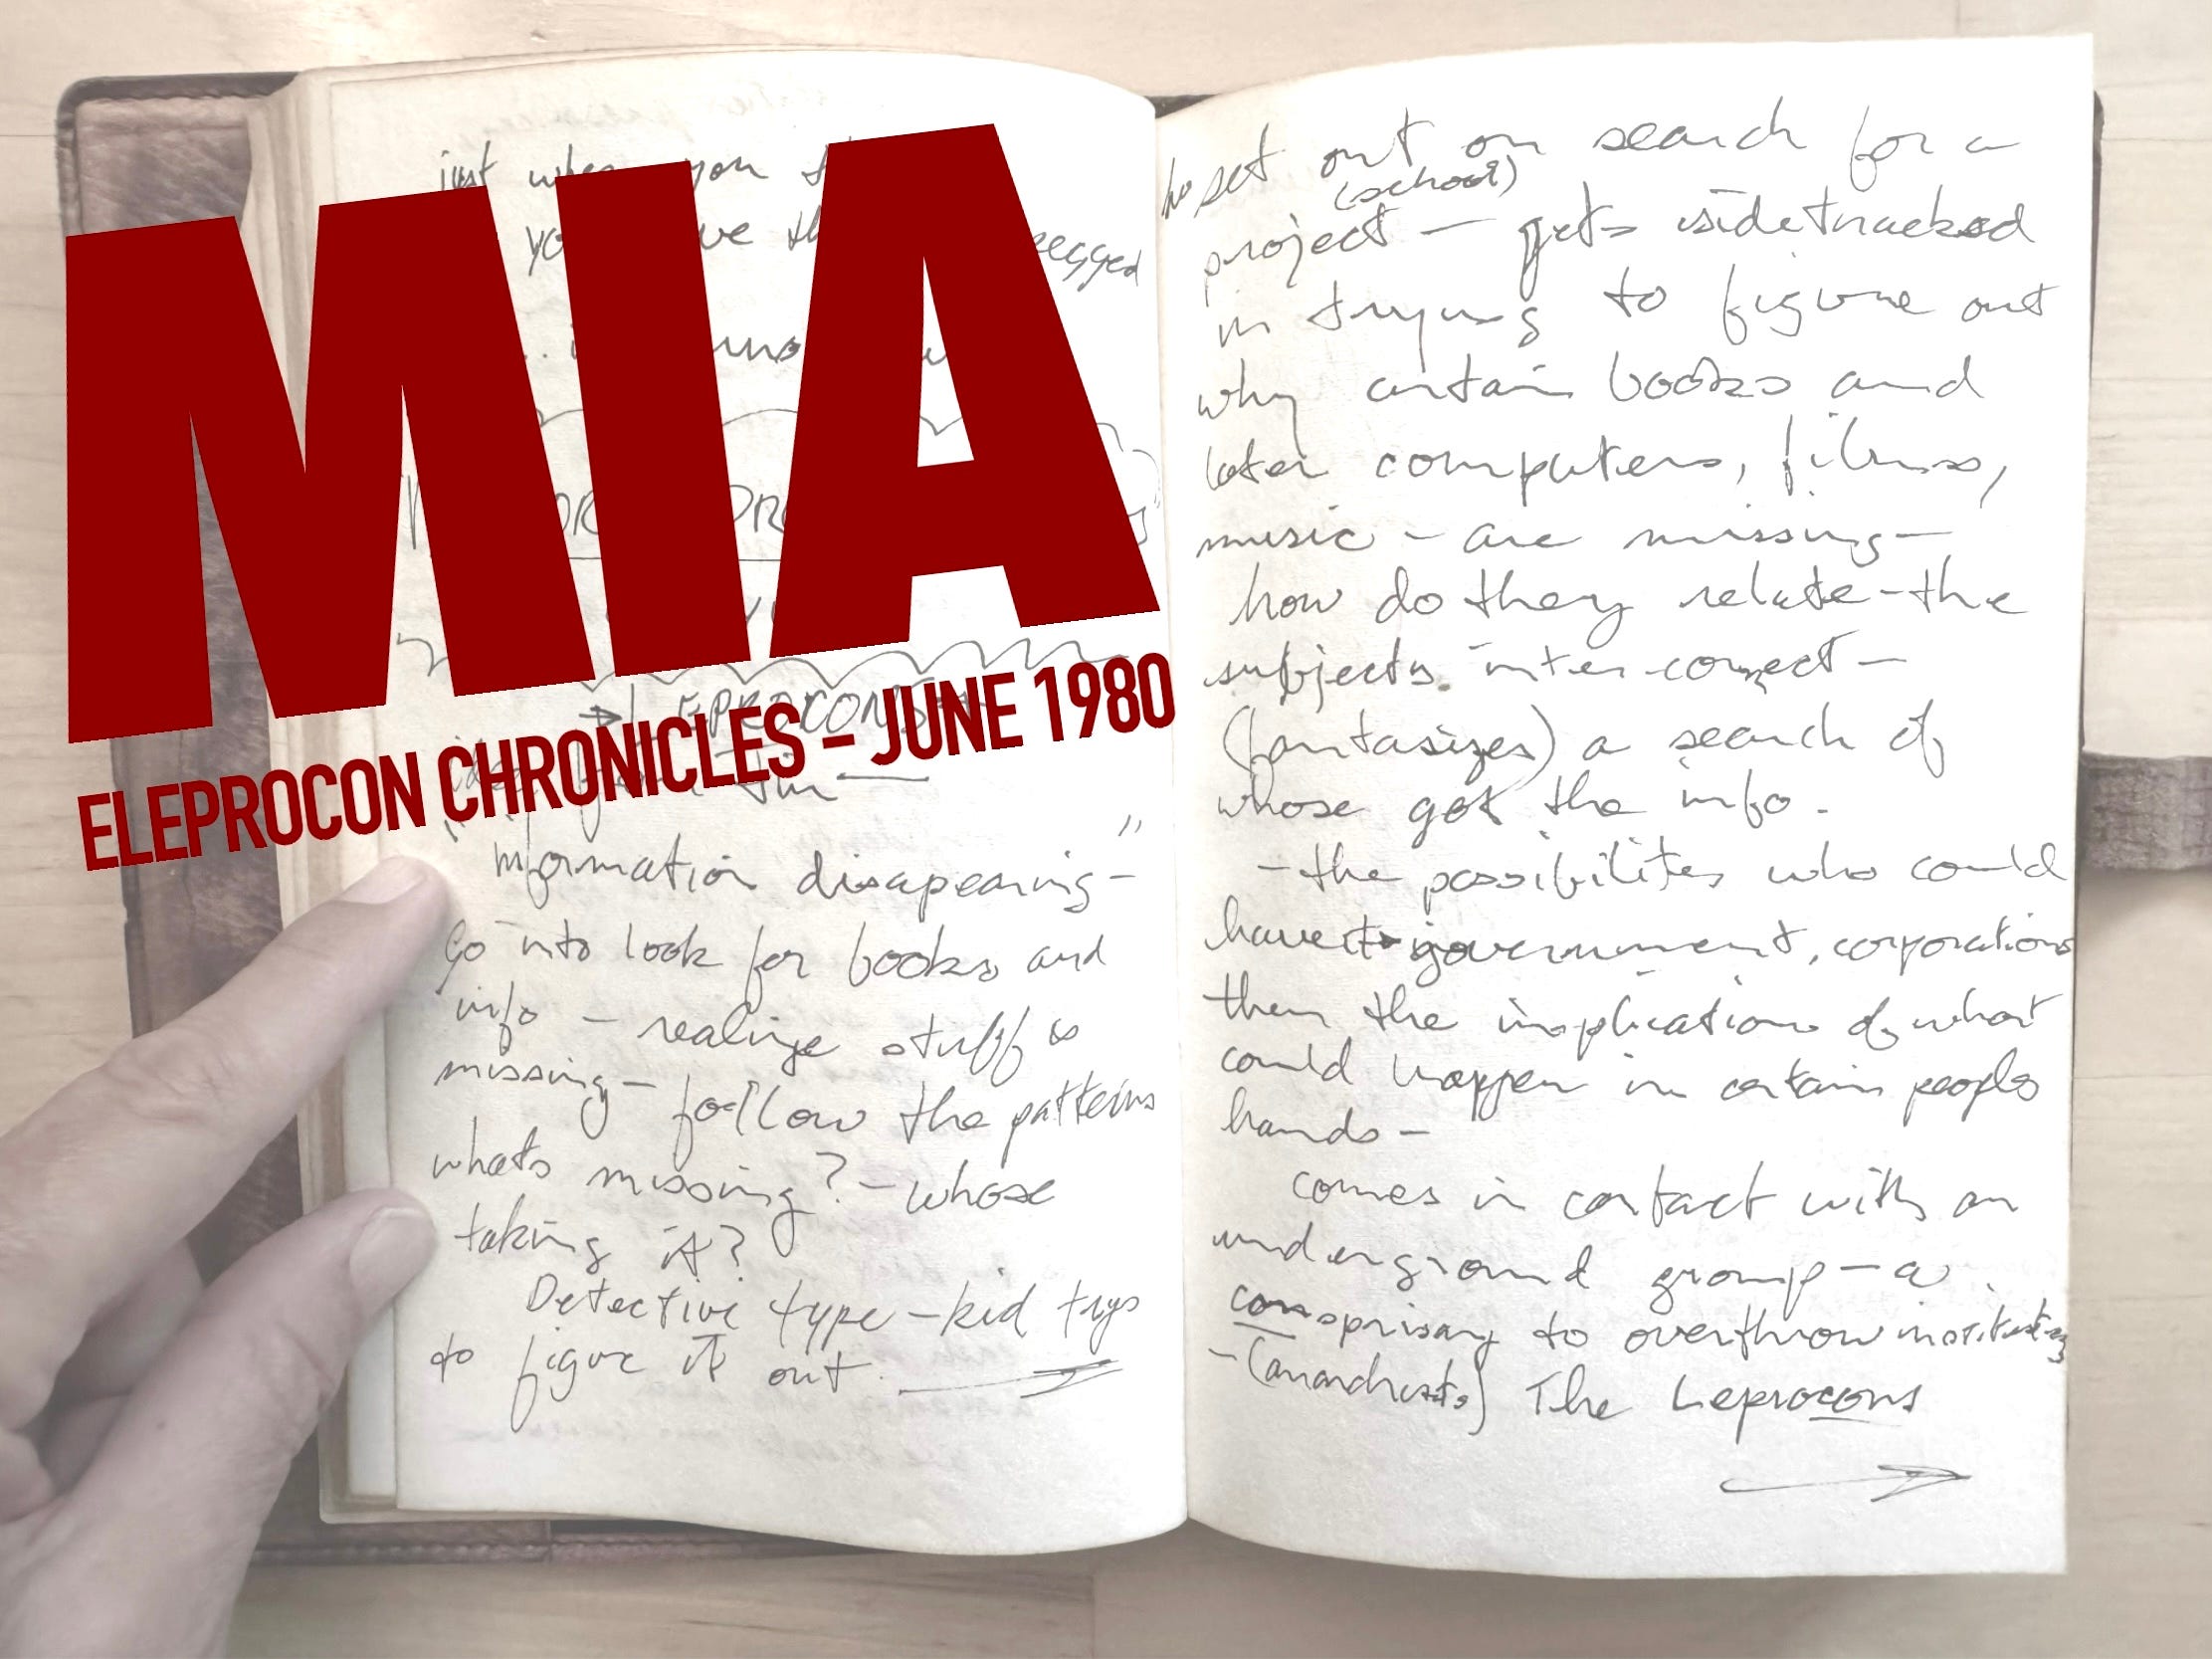 MIA
ELEPROCON CHRONICLES – JUNE 1980
just when you
"Information disapearing-"
Go into look for books and
info - realize stuff is
missing - follow the patterns
whats missing? - whose
taking it?
Detective type - kid trys
to figure it out.
set out on search for a
(school)
project - gets sidetracked
in trying to figure out
why certain books and
later computers, films,
music - are missing -
how do they relate - the
subjects inter-connect -
(fantasizes) a search of
whose got the info.
- the possibilites who could
have it - government, corporations
then the implications of what
could happen in certain people
hands -
comes in contact with an
underground group - a
consprisay to overthrow
- (anarchists) The Leprocons